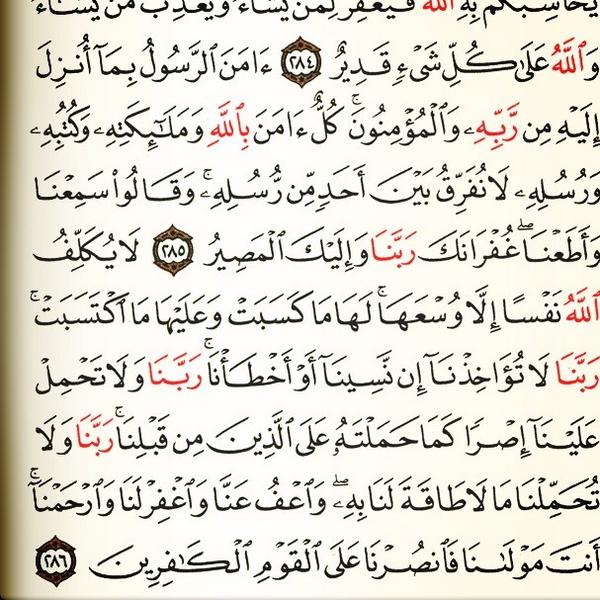 يُحَاسِبْكُم بِهِ ٱللَّهُ فَيَغْفِرُ لِمَن يَشَآءُ وَيُعَذِّبُ مَن يَشَآءُ
وَٱللَّهُ عَلَىٰ كُلِّ شَىْءٍ قَدِيرٌ ٢٨٤ ءَامَنَ ٱلرَّسُولُ بِمَآ أُنزِلَ
إِلَيْهِ مِن رَّبِّهِۦ وَٱلْمُؤْمِنُونَ ۚ كُلٌّ ءَامَنَ بِٱللَّهِ وَمَلَـٰٓئِكَتِهِۦ وَكُتُبِهِۦ
وَرُسُلِهِۦ لَا نُفَرِّقُ بَيْنَ أَحَدٍ مِّن رُّسُلِهِۦ ۚ وَقَالُوا۟ سَمِعْنَا
وَأَطَعْنَا ۖ غُفْرَانَكَ رَبَّنَا وَإِلَيْكَ ٱلْمَصِيرُ ٢٨٥ لَا يُكَلِّفُ
ٱللَّهُ نَفْسًا إِلَّا وُسْعَهَا ۚ لَهَا مَا كَسَبَتْ وَعَلَيْهَا مَا ٱكْتَسَبَتْ ۗ
رَبَّنَا لَا تُؤَاخِذْنَآ إِن نَّسِينَآ أَوْ أَخْطَأْنَا ۚ رَبَّنَا وَلَا تَحْمِلْ
عَلَيْنَآ إِصْرًا كَمَا حَمَلْتَهُۥ عَلَى ٱلَّذِينَ مِن قَبْلِنَا ۚ رَبَّنَا وَلَا
تُحَمِّلْنَا مَا لَا طَاقَةَ لَنَا بِهِۦ ۖ وَٱعْفُ عَنَّا وَٱغْفِرْ لَنَا وَٱرْحَمْنَآ ۚ
أَنتَ مَوْلَىٰنَا فَٱنصُرْنَا عَلَى ٱلْقَوْمِ ٱلْكَـٰفِرِينَ ٢٨٦